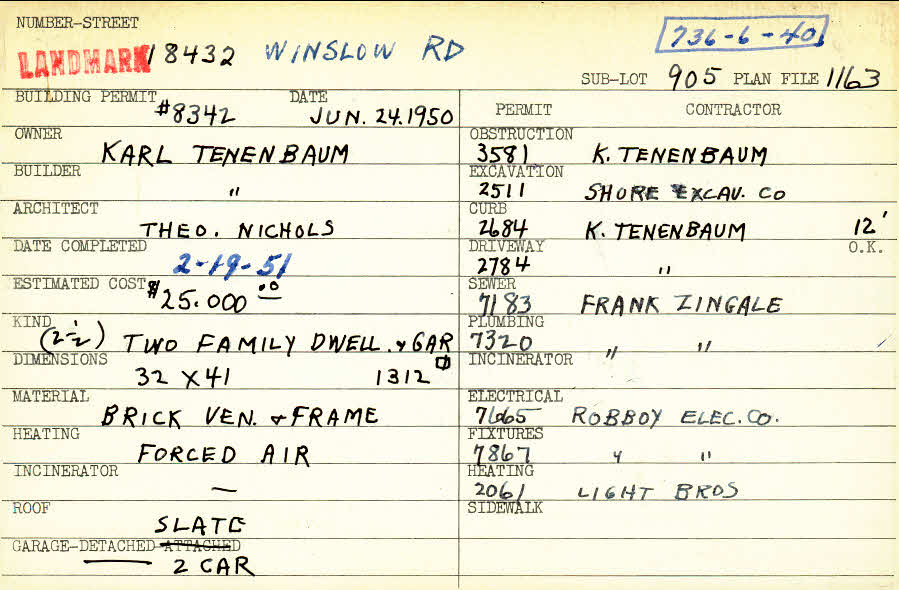 NUMBER-STREET
LANDMARK 18432 WINSLOW RD
736-6-40
SUB-LOT 905 PLAN FILE 1163
BUILDING PERMIT #8342 DATE JUN. 24. 1950
OWNER KARL TENENBAUM
BUILDER "
ARCHITECT THEO. NICHOLS
DATE COMPLETED 2-19-51
ESTIMATED COST $25.000 00
KIND (2-½) TWO FAMILY DWELL. & GAR
DIMENSIONS 32 X 41 1312 □
MATERIAL BRICK VEN. & FRAME
HEATING FORCED AIR
INCINERATOR —
ROOF SLATE
GARAGE-DETACHED ATTACHED
2 CAR
PERMIT CONTRACTOR
OBSTRUCTION 3581 K. TENENBAUM
EXCAVATION 2511 SHORE EXCAV. CO
CURB 2684 K. TENENBAUM 12'
DRIVEWAY 2784 " O.K.
SEWER 7183 FRANK ZINGALE
PLUMBING 7320 " "
INCINERATOR
ELECTRICAL 7665 ROBBOY ELEC. CO.
FIXTURES 7867 " "
HEATING 2061 LIGHT BROS
SIDEWALK